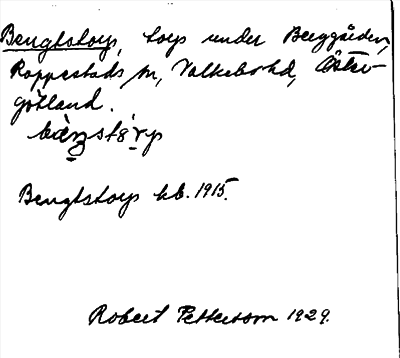 Bengtstorp, torp under Berggården,
Rappestads sn, Valkebo hd, Öster-
götland.
bàŋstórp
Bengtstorp kb. 1915.
Robert Pettersson 1929.